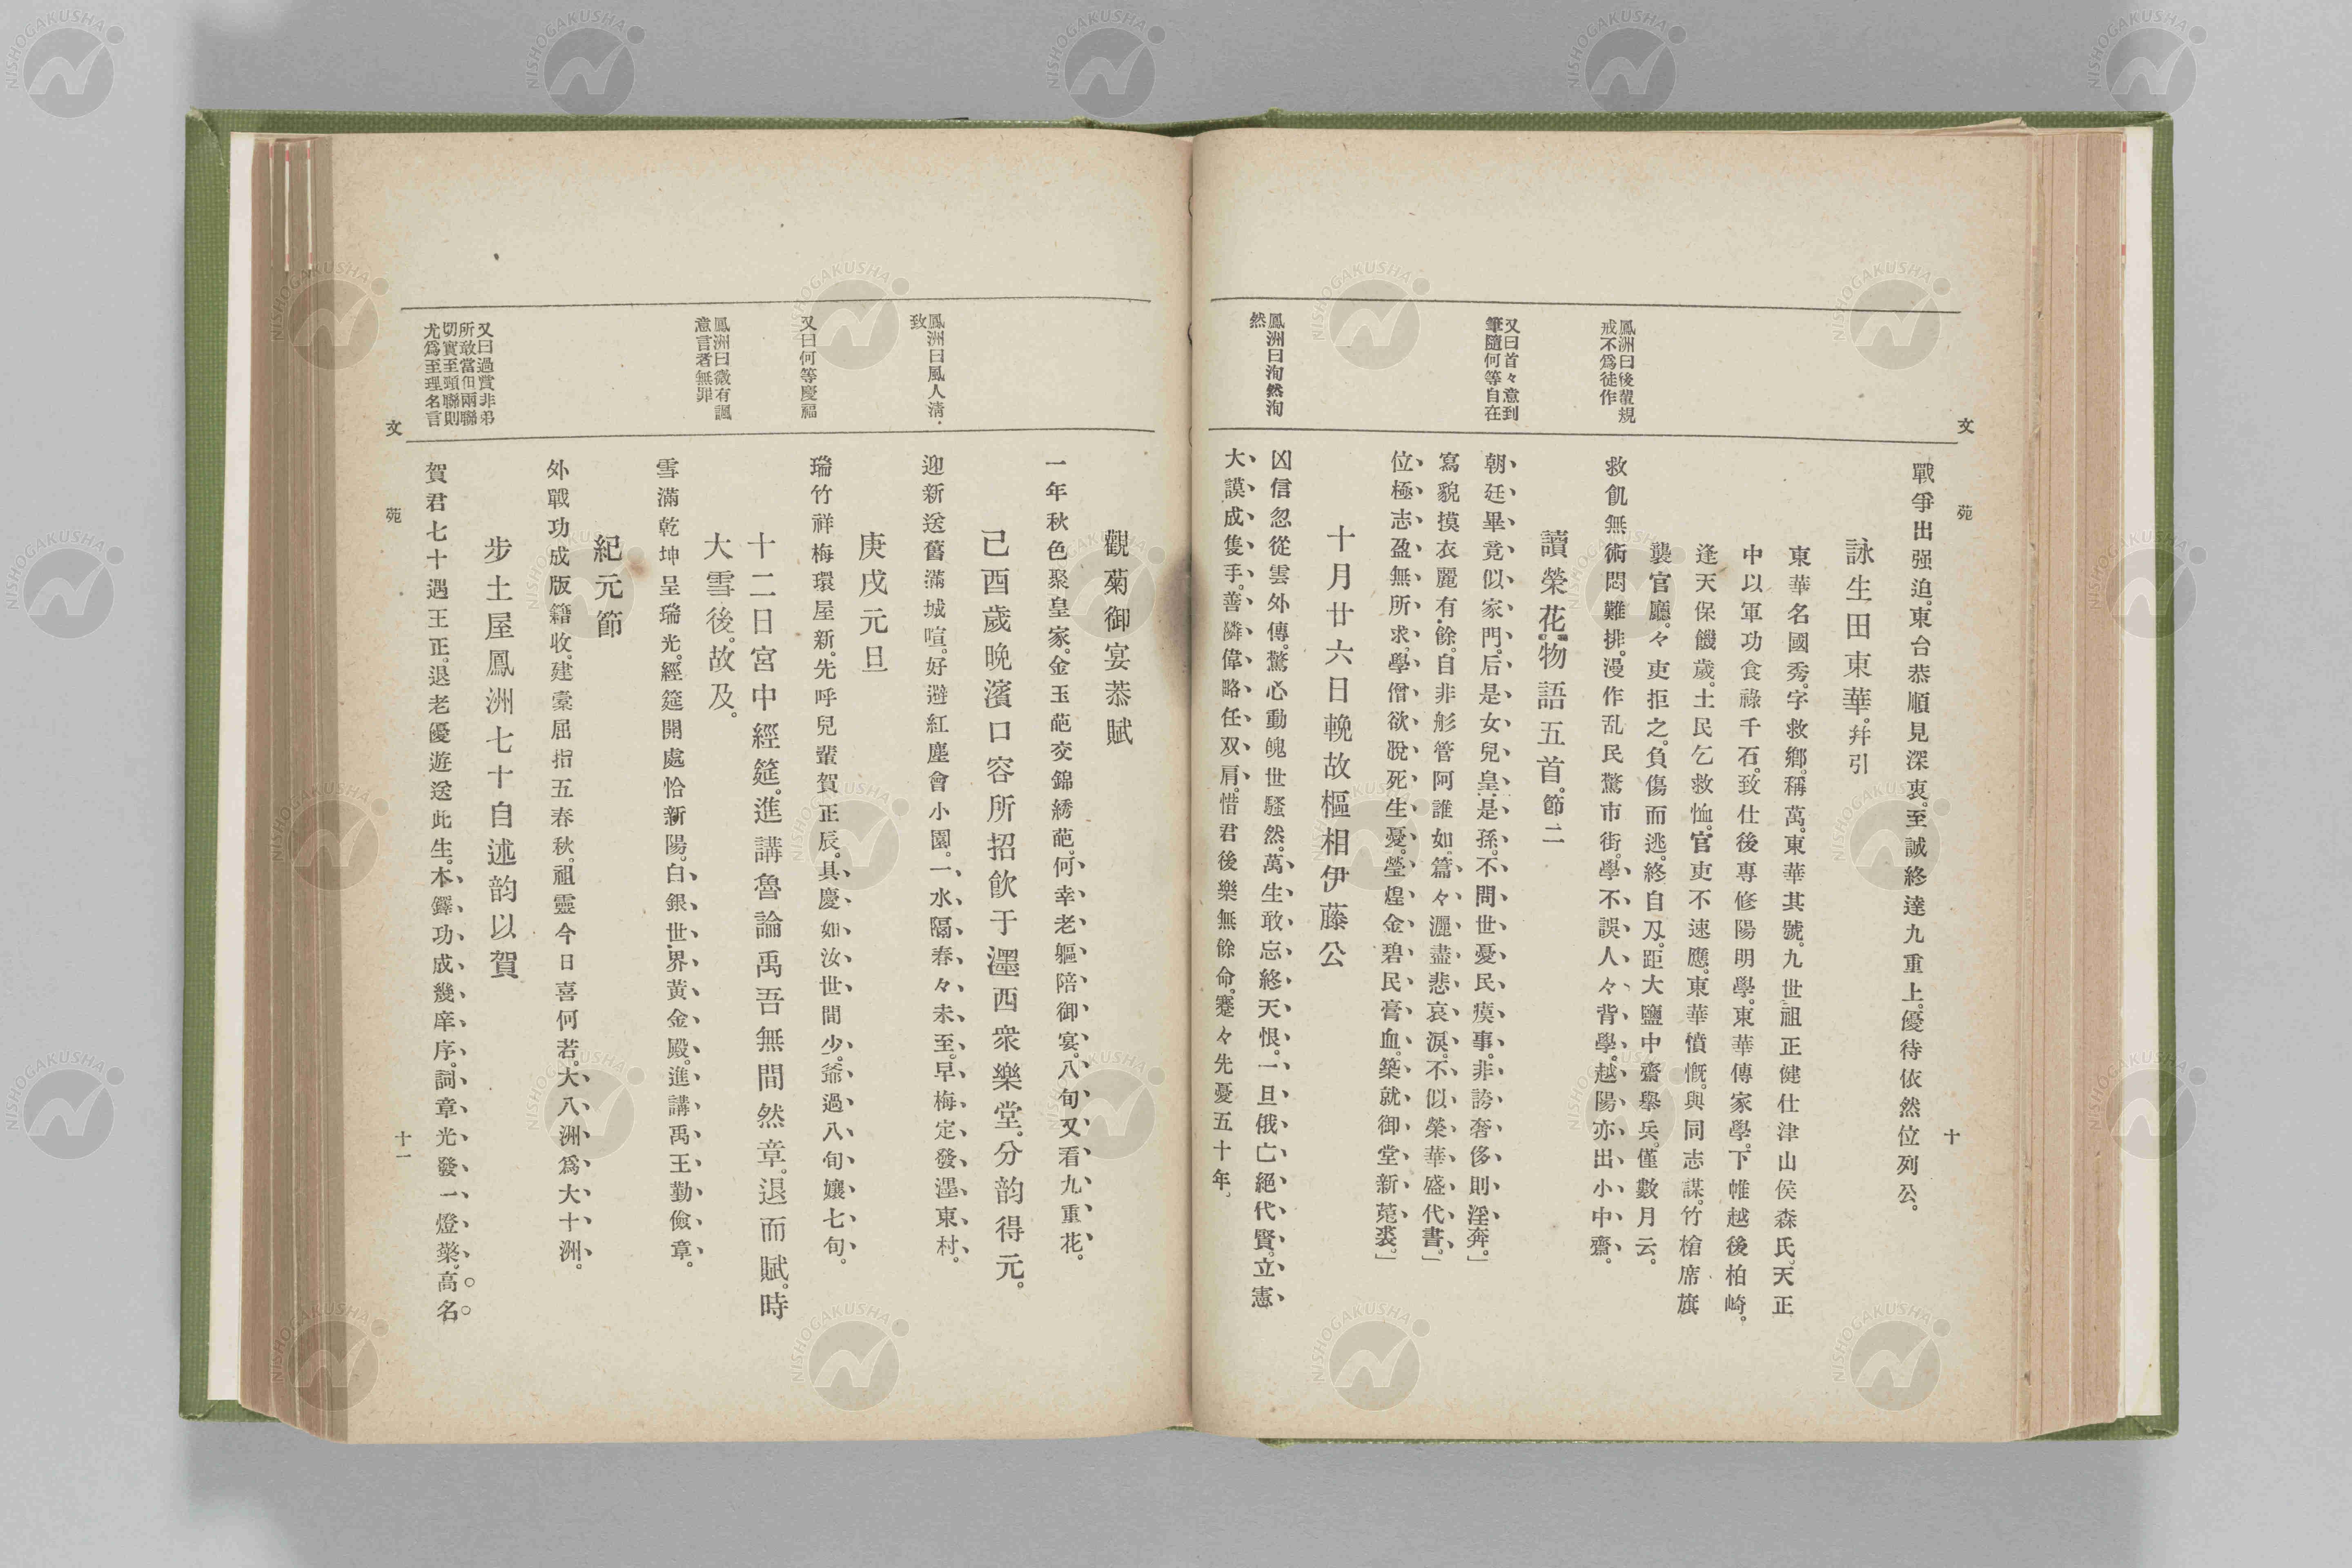 文苑
十
戰爭出强迫。東台恭順見深衷。至誠終達九重上。優待依然位列公。
詠生田東華。幷引
東華名國秀。字救鄕。稱萬。東華其號。九世祖正健仕津山侯森氏。天正
中以軍功食祿千石。致仕後專修陽明學。東華傳家學。下帷越後柏崎。
逢天保饑歲。土民乞救恤。官吏不速應。東華憤慨。與同志謀。竹槍席旗
襲官廳。々吏拒之。負傷而逃。終自刄。距大鹽中齋擧兵。僅數月云。
鳳洲曰後輩規
戒不爲徒作
救飢無術悶難排。漫作乱民驚市街。學不誤人々背學。越陽亦出小中齋。
讀榮花物語五首。節二
又曰首々意到
筆隨何等自在
朝廷畢竟似家門。后是女兒皇是孫。不問世憂民瘼事。非誇奢侈則淫奔。」
寫貌摸衣麗有餘。自非彤管阿誰如。篇々灑盡悲哀淚。不似榮華盛代書。」
位極志盈無所求。學僧欲脫死生憂。瑩煌金碧民膏血。築就御堂新菟裘。」
十月廿六日輓故樞相伊藤公
鳳洲曰洵然洵
然
凶信忽從雲外傳。驚心動魄世騷然。萬生敢忘終天恨。一旦俄亡絕代賢。立憲
大謨成隻手。善隣偉略任双肩。惜君後樂無餘命。蹇々先憂五十年。
觀菊御宴恭賦
一年秋色聚皇家。金玉葩交錦綉葩。何幸老軀陪御宴。八旬又看九重花。
己酉歲晩濱口容所招飮于濹西衆樂堂。分韵得元。
鳳洲曰風人淸
致
迎新送舊滿城喧。好避紅塵會小園。一水隔春々未至。早梅定發濹東村。
庚戌元旦
又曰何等慶福
瑞竹祥梅環屋新。先呼兒輩賀正辰。具慶如汝世間少。爺過八旬孃七旬。
十二日宮中經筵。進講魯論禹吾無間然章。退而賦。時
大雪後。故及。
鳳洲曰微有諷
意言者無罪
雪滿乾坤呈瑞光。經筵開處恰新陽。白銀世界黃金殿。進講禹王勤儉章。
紀元節
外戰功成版籍收。建櫜屈指五春秋。祖靈今日喜何若。大八洲爲大十洲。
步土屋鳳洲七十自述韵以賀
又曰過賞非弟
所敢當但兩聯
切實至頸聯則
尤爲至理名言
賀君七十遇王正。退老優遊送此生。木鐸功成幾庠序。詞章光發一燈檠。高名
文苑
十一